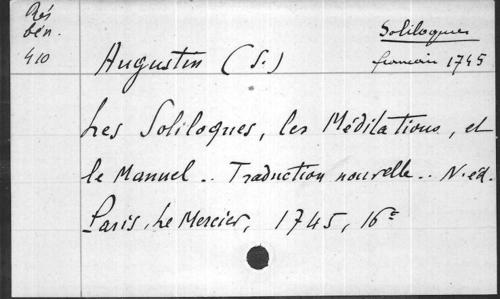 Rés
bén.
410
Soliloques
français 1745
Augustin (S.)
Les Soliloques, les Méditations, et
le Manuel .. Traduction nouvelle .. N. éd.
Paris, Le Mercier, 1745, 16º